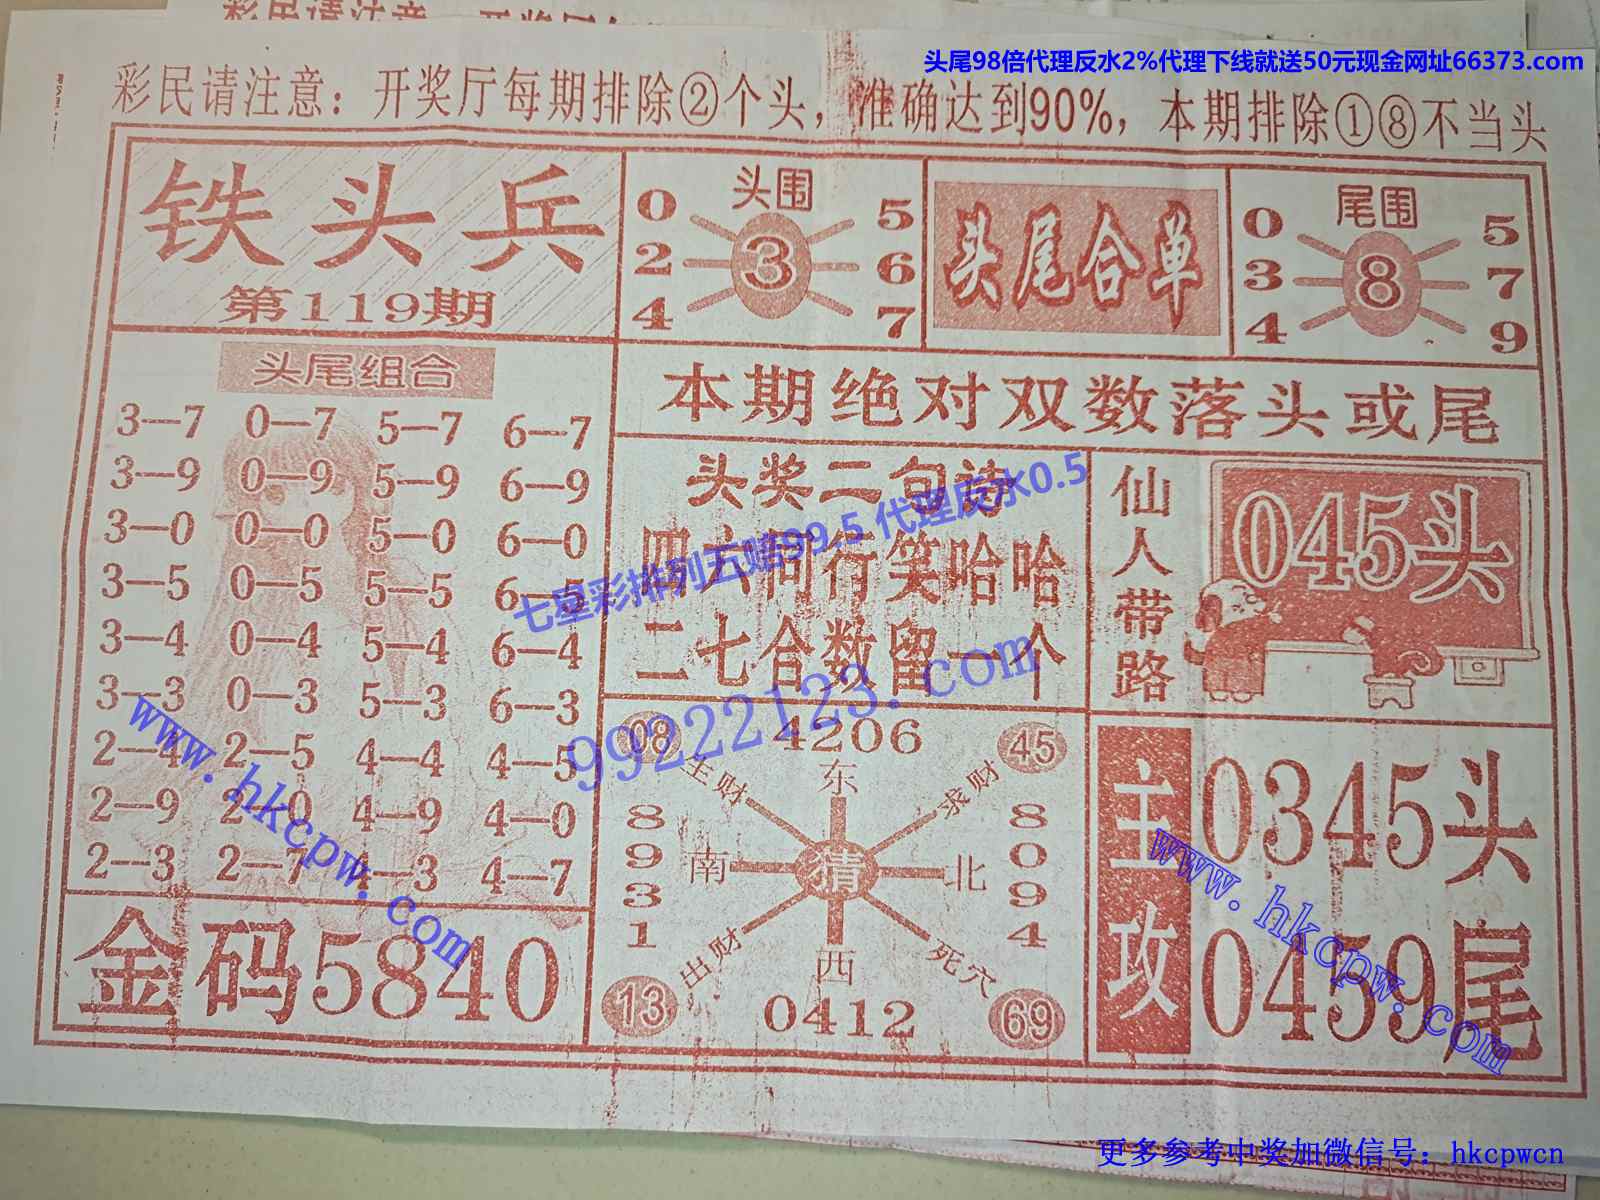 头尾98倍代理反水2%代理下线就送50元现金网址66373.com
彩民请注意：开奖厅每期排除②个头，准确达到90%，本期排除①⑧不当头
铁头兵
第119期
头围
0 5
2 3 6
4 7
头尾合单
尾围
0 5
3 8 7
4 9
头尾组合
3—7 0—7 5—7 6—7
3—9 0—9 5—9 6—9
3—0 0—0 5—0 6—0
3—5 0—5 5—5 6—5
3—4 0—4 5—4 6—4
3—3 0—3 5—3 6—3
2—4 2—5 4—4 4—5
2—9 2—0 4—9 4—0
2—3 2—7 4—3 4—7
金码5840
本期绝对双数落头或尾
头奖二句诗
四六同行笑哈哈
二七合数留一个
七星彩排列五赔99.5 代理反水0.5
99222123.com
仙人带路
045头
08 4206 45
生财 东 求财
8931
南 猜 北
8094
出财 西 死穴
13 0412 69
主攻
0345头
0459尾
www.hkcpw.com
www.hkcpw.com
更多参考中奖加微信号：hkcpwcn